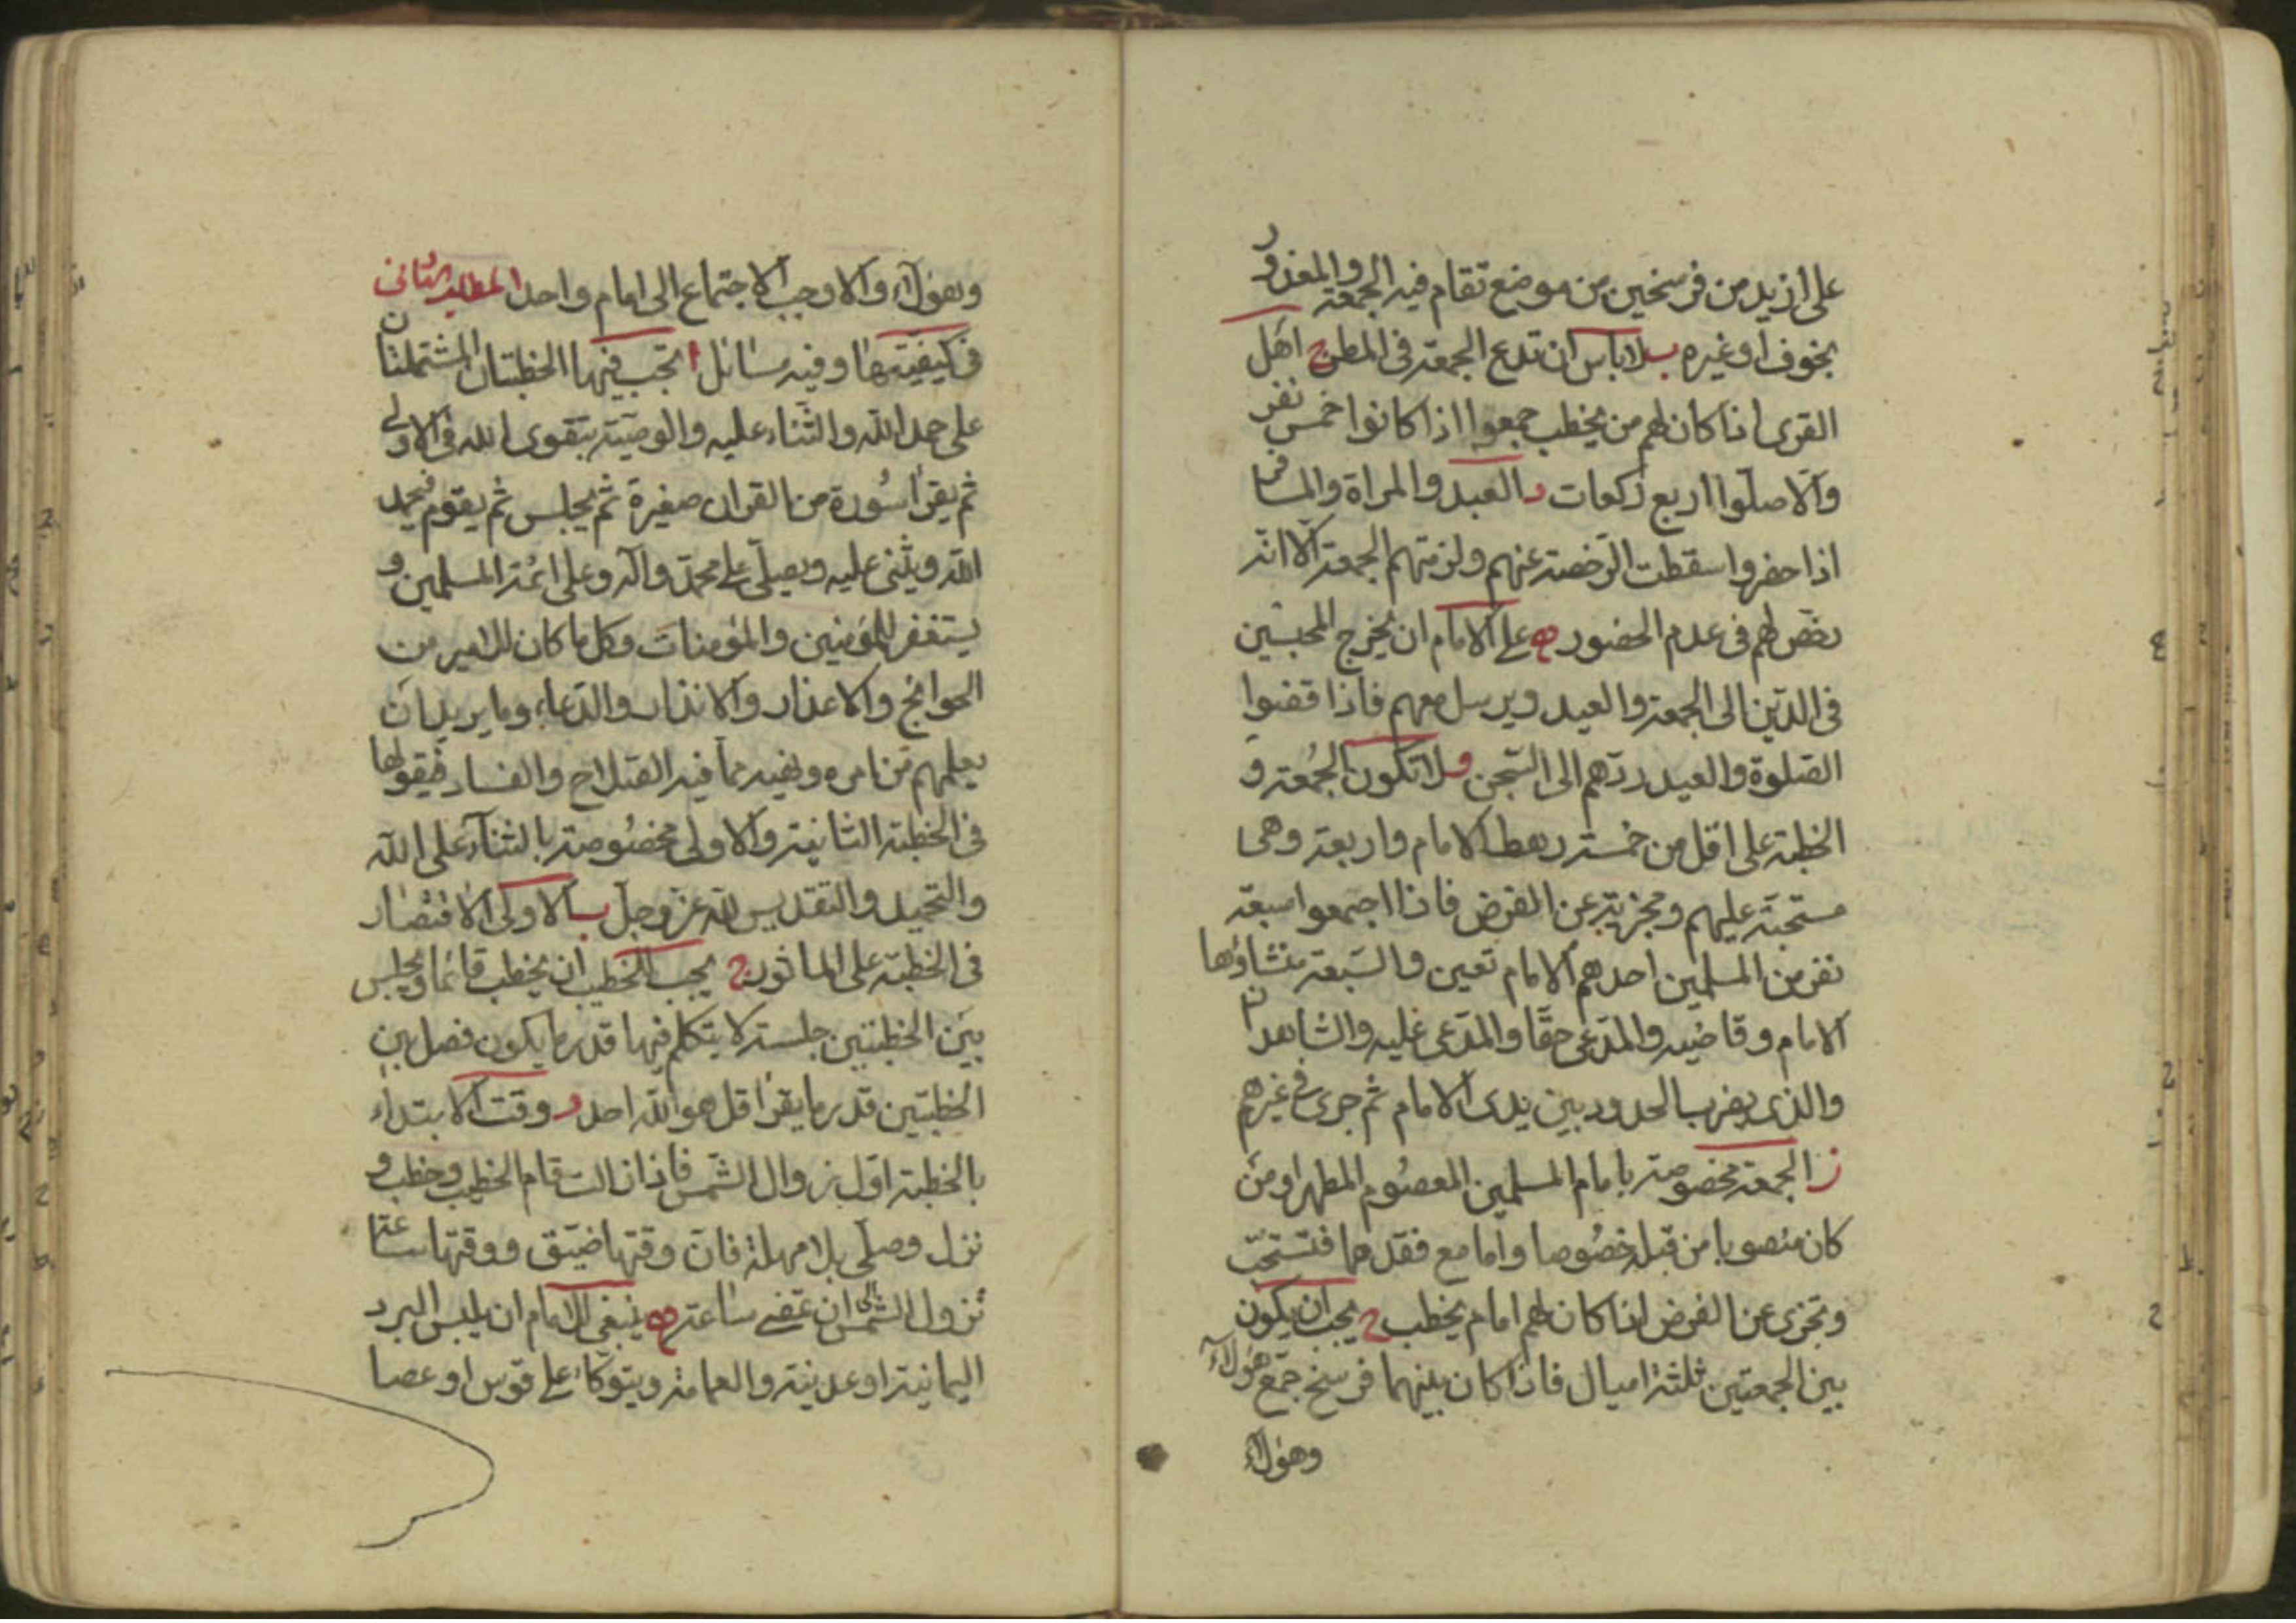 على ازيد من فرسخين من موضع تقام فيه الجمعة والمعذور
بخوف او غيره ب لا باس ان تدع الجمعة فى المطر ج اهل
القرى اذا كان لهم من يخطب جمعوا اذا كانوا خمس نفر
والا صلوا اربع ركعات د العبد والمراة والمسافر
اذا حضروا سقطت الرخصة عنهم ولزمتهم الجمعة الا انه
رخص لهم فى عدم الحضور ه على الامام ان يخرج المحبسين
فى الدين الى الجمعة والعيد ويرسل معهم فاذا قضوا
الصلوة والعيد ردهم الى السجن و لا تكون الجمعة و
الخطبة على اقل من خمسة رهط الامام واربعة وهى
مستحبة عليهم ومجزية عن الفرض فاذا اجتمعوا سبعة
نفر من المسلمين احدهم الامام تعين والسبعة منشاؤها
الامام وقاضيه والمدعى حقا والمدعى عليه والشاهدان
والذى يضرب الحدود بين يدى الامام ثم جرى فى غيرهم
ز الجمعة مخصوصة بامام المسلمين المعصوم المطهر او من
كان منصوبا من قبله خصوصا واما مع فقدهما فتستحب
وتجزى عن الفرض اذا كان لهم امام يخطب ح يجب ان يكون
بين الجمعتين ثلثة اميال فاذا كان بينهما فرسخ جمع هؤلاء
وهؤلاء
وهؤلاء والا وجب الاجتماع الى امام واحد المطلب الثانى
فى كيفيتها وفيه مسائل ا تجب فيها الخطبتان المشتملتان
على حمد الله والثناء عليه والوصية بتقوى الله فى الاولى
ثم يقرا سورة من القران صغيرة ثم يجلس ثم يقوم فيحمد
الله ويثنى عليه ويصلى على محمد واله وعلى ائمة المسلمين و
يستغفر للمؤمنين والمؤمنات وكل ما كان للامير من
الحوائج والاعذار والانذار والدعاء وما يريد ان
يعلمهم من امره ونهيه مما فيه الصلاح والفساد فيقولها
فى الخطبة الثانية والاولى مخصوصة بالثناء على الله
والتحميد والتقديس لله عز وجل ب الاولى الاقتصار
فى الخطبة على الماثور ج يجب للخطيب ان يخطب قائما ويجلس
بين الخطبتين جلسة لا يتكلم فيها قدر ما يكون فصل بين
الخطبتين قدر ما يقرا قل هو الله احد د وقت الابتداء
بالخطبة اول زوال الشمس فاذا زالت قام الخطيب وخطب و
نزل وصلى بلا مهلة فان وقتها ضيق ووقتها ساعة
تزول الشمس الى ان تمضى ساعة ه ينبغى للامام ان يلبس البرد
اليمانية او عدنية والعمامة ويتوكا على قوس او عصا